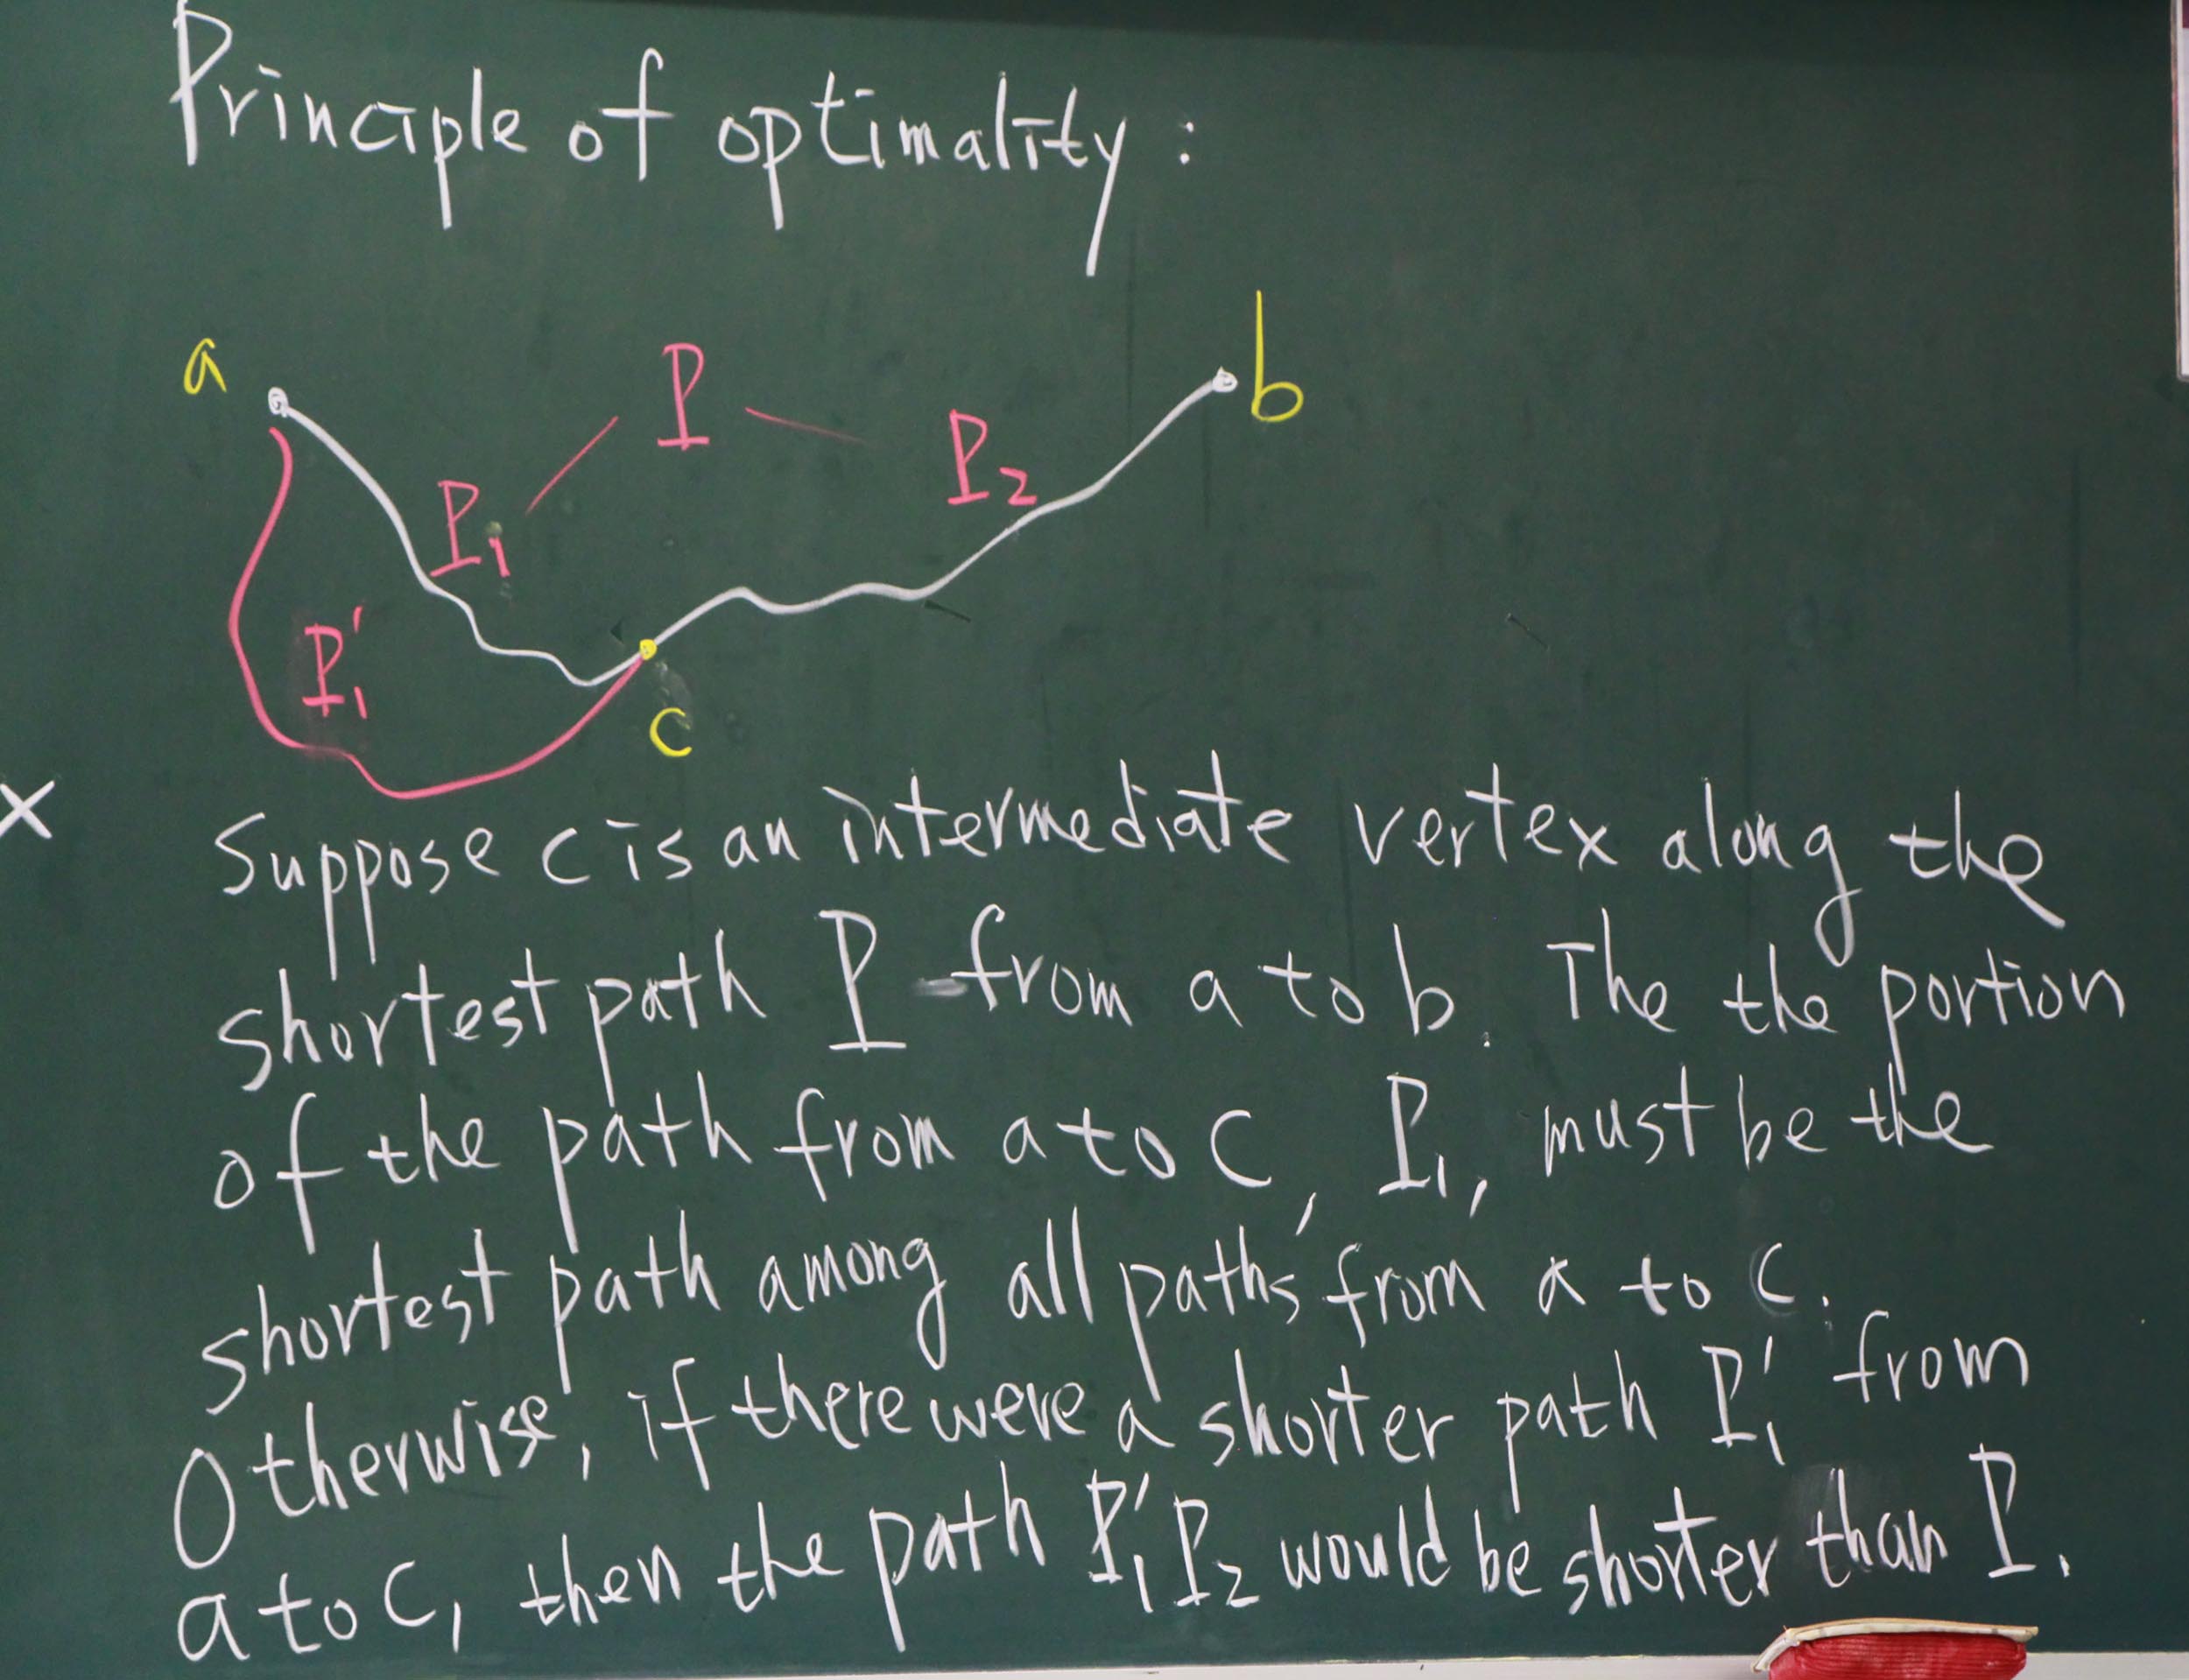 Principle of optimality:
a
b
P
P₂
P₁
P₁'
c
x
Suppose c is an intermediate vertex along the
shortest path P from a to b. The the portion
of the path from a to c, P₁, must be the
shortest path among all paths from a to c.
Otherwise, if there were a shorter path P₁' from
a to c, then the path P₁'P₂ would be shorter than P.